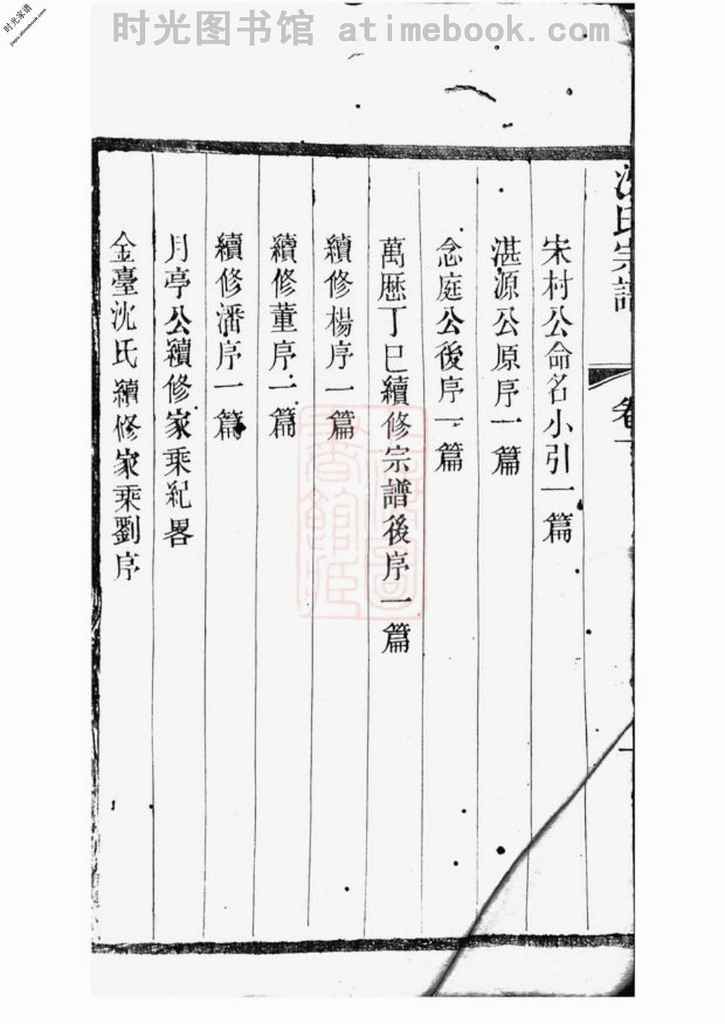 时光图书馆 atimebook.com
时光家谱
沈氏宗譜
卷一
宋村公命名小引一篇
湛源公原序一篇
念庭公後序一篇
萬厯丁巳續修宗譜後序一篇
續修楊序一篇
續修董序一篇
續修潘序一篇
月亭公續修家乘紀畧
金臺沈氏續修家乘劉序